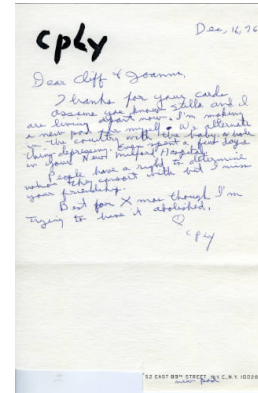 cply
Dec, 16, 76
Dear Cliff & Joanne,
Thanks for your card.
assume you know Stella and I
are living apart now. I'm making
a new pad for myself. We alternate
in the country with the baby, a whole
thing depressing. Even spent a few days
in your New Milford Hospital.
People have a right to determine
whom they consort with but I miss
your friendship.
Best for X mas though I'm
trying to have it abolished.
cply
52 EAST 89TH STREET, N.Y.C., N.Y. 10028
new pad